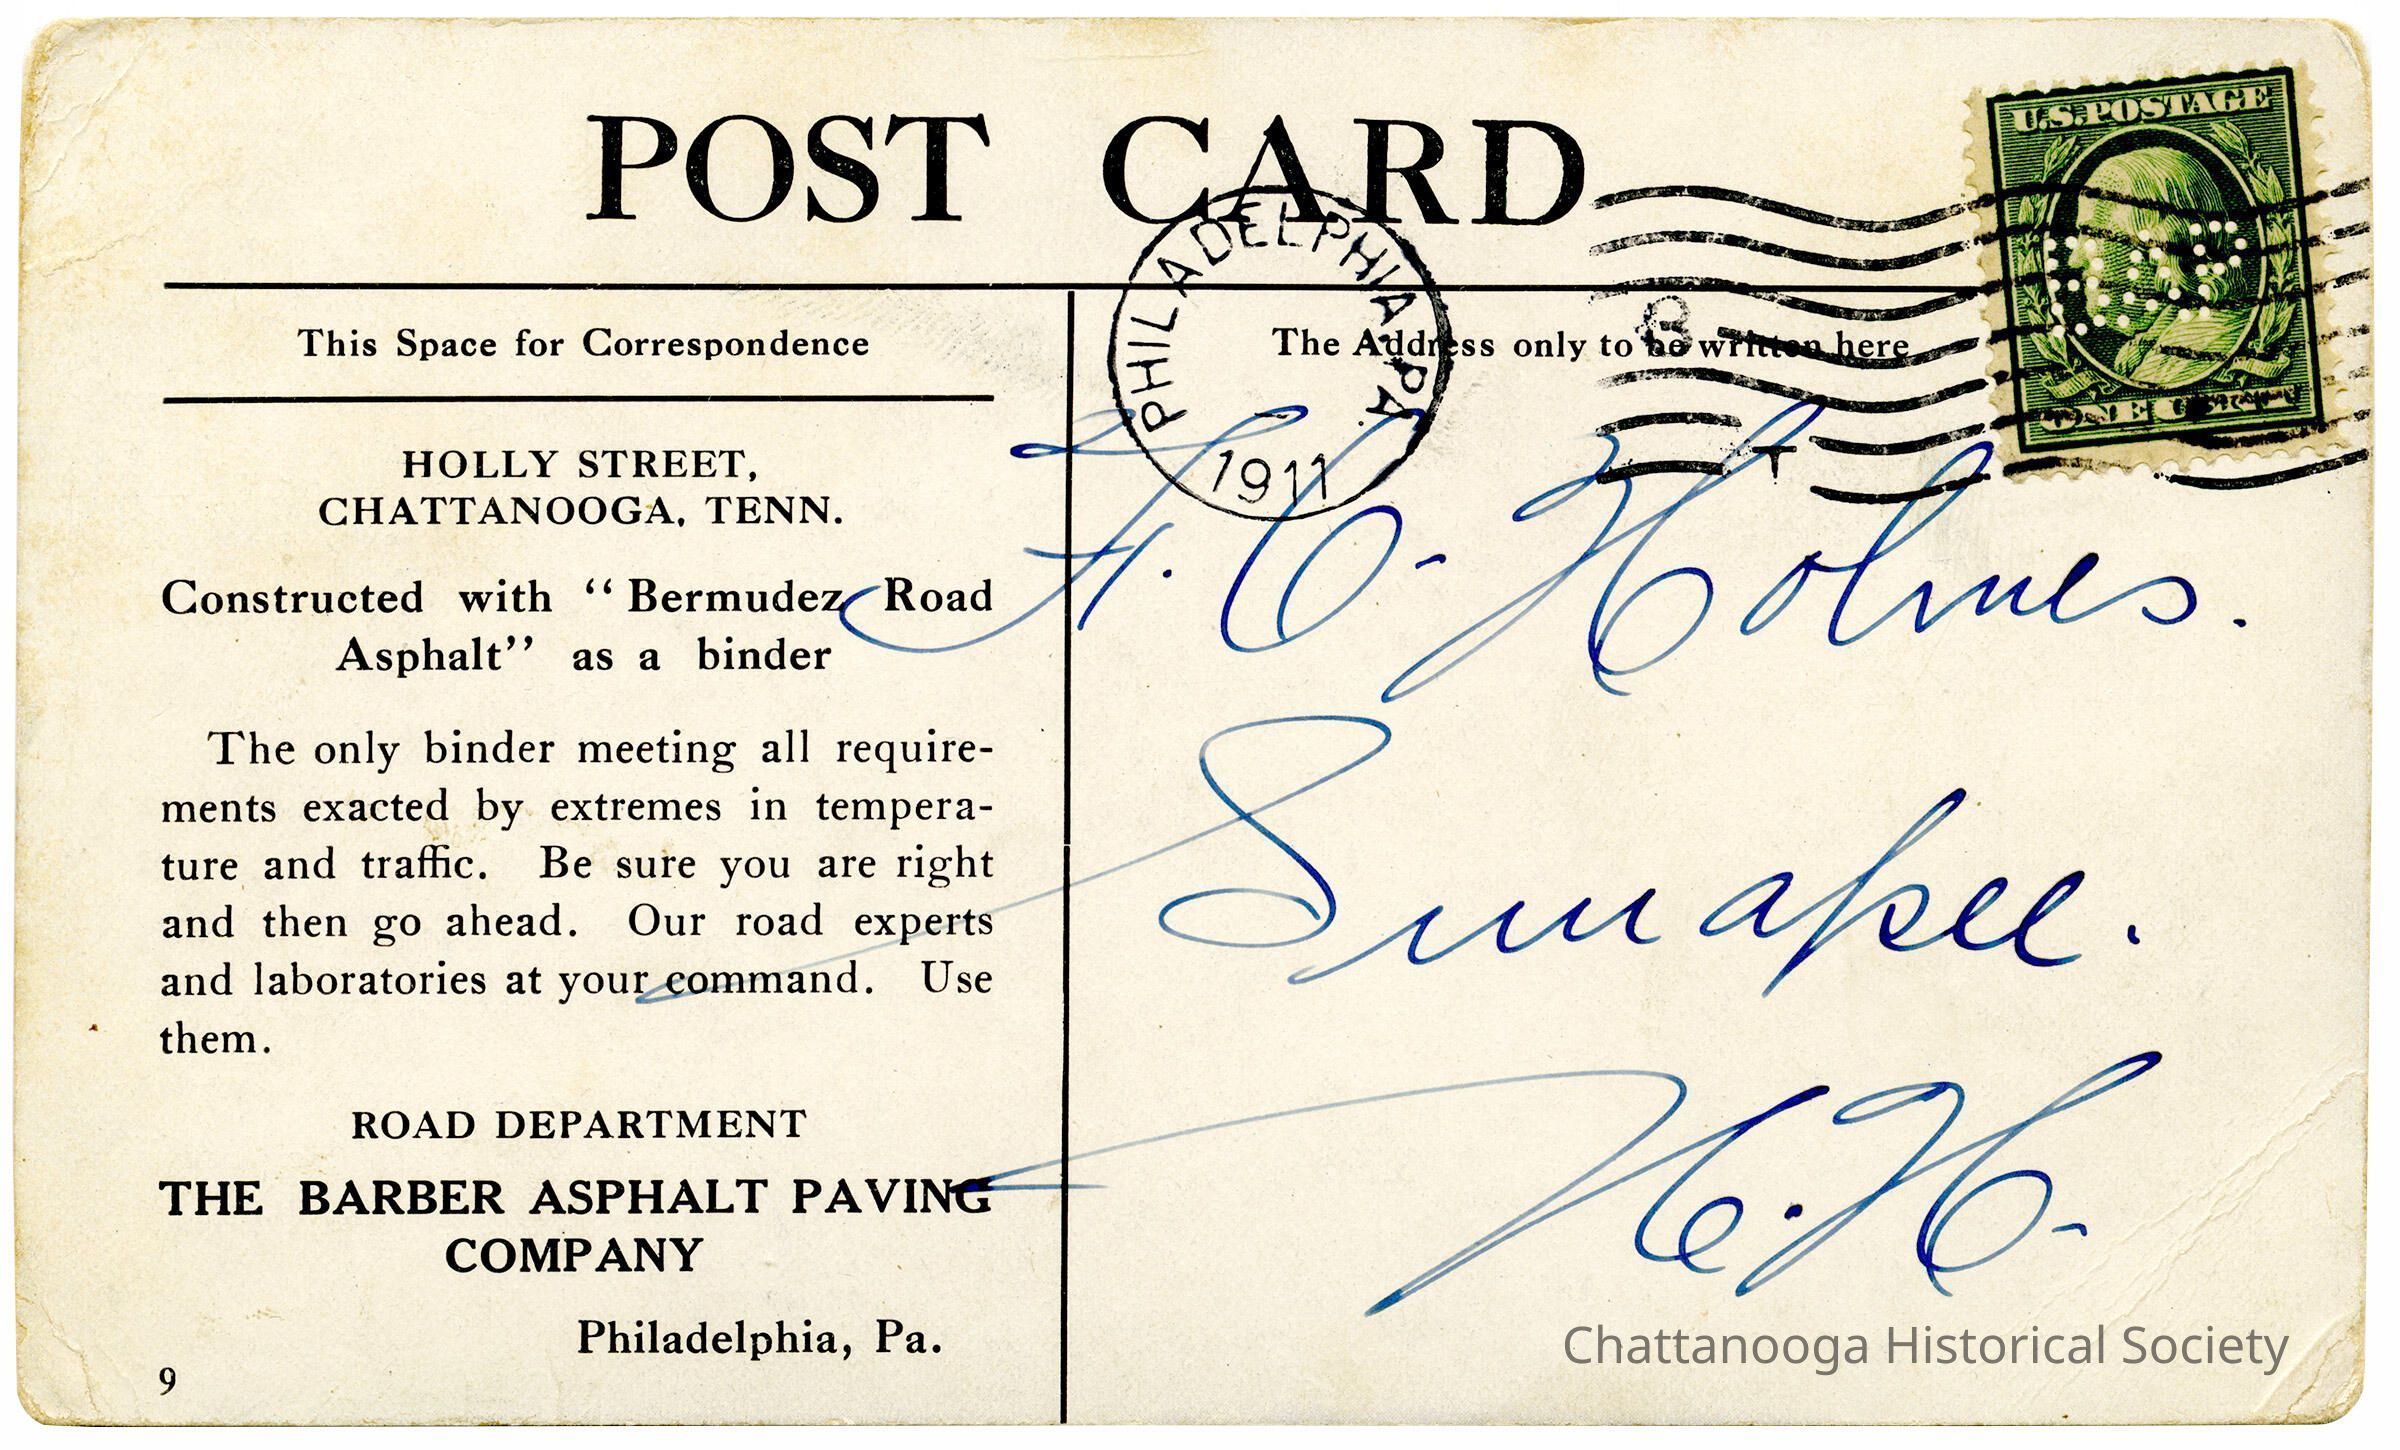 POST CARD
U.S. POSTAGE
PHILADELPHIA, PA.
1911
This Space for Correspondence
The Address only to be written here
HOLLY STREET,
CHATTANOOGA, TENN.
Constructed with “Bermudez Road
Asphalt” as a binder
The only binder meeting all require-
ments exacted by extremes in tempera-
ture and traffic. Be sure you are right
and then go ahead. Our road experts
and laboratories at your command. Use
them.
ROAD DEPARTMENT
THE BARBER ASPHALT PAVING
COMPANY
Philadelphia, Pa.
9
Holmes.
Sunapee.
N. H.
Chattanooga Historical Society